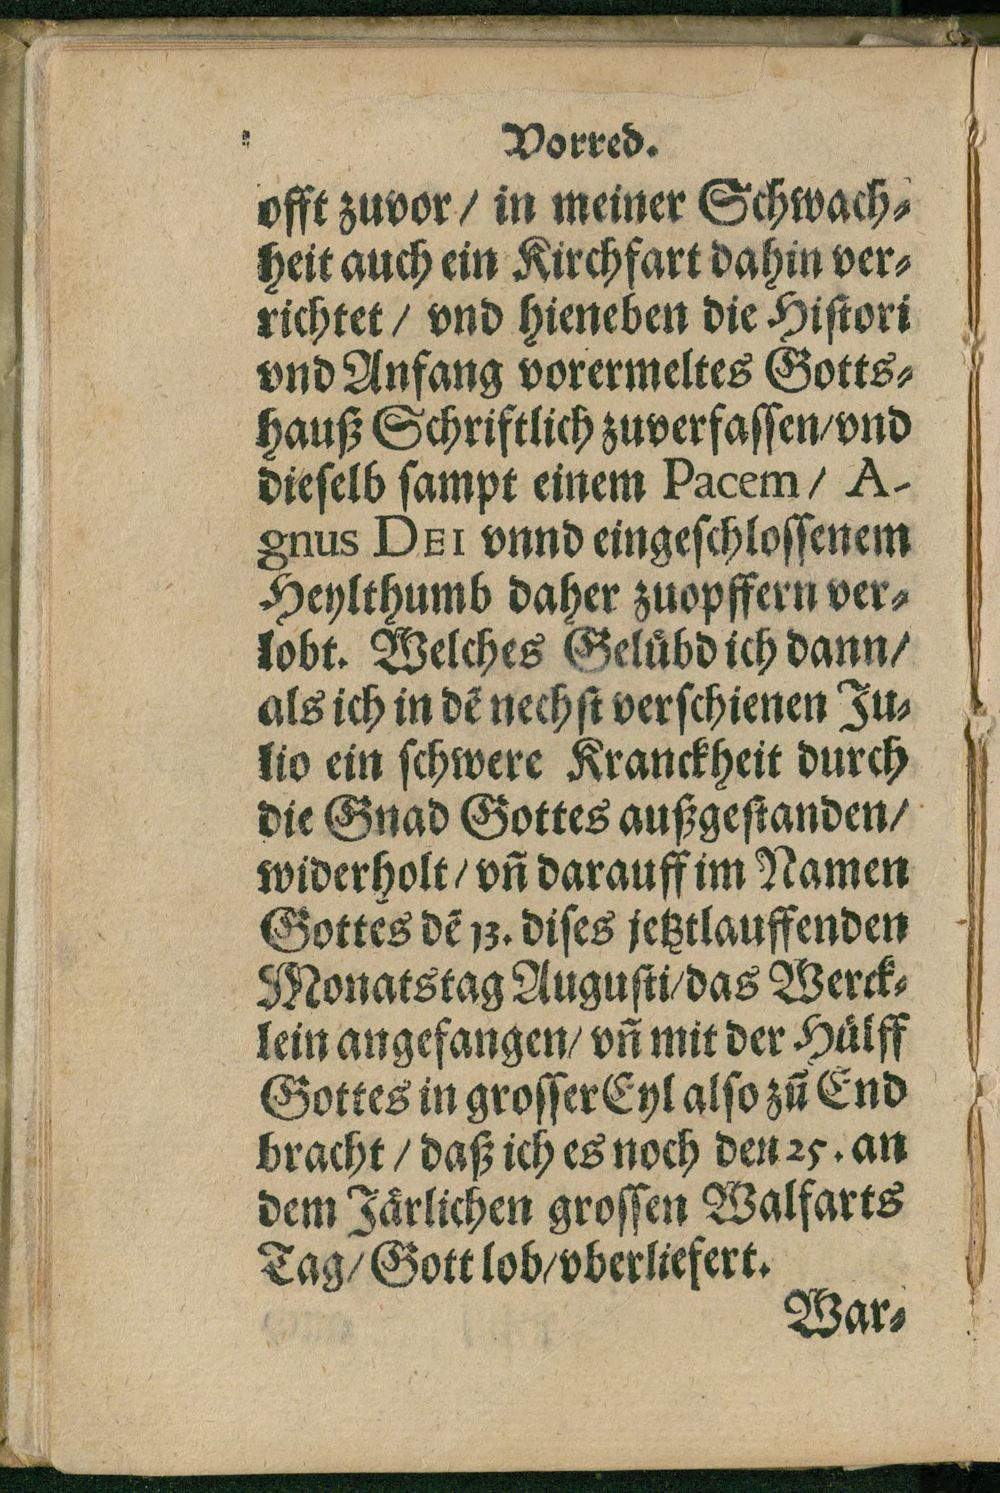 Vorred.
offt zuvor / in meiner Schwach-
heit auch ein Kirchfart dahin ver-
richtet / vnd hieneben die Histori
vnd Anfang vorermeltes Gotts-
hauß Schriftlich zuverfassen/vnd
dieselb sampt einem Pacem / A-
gnus DEI vnnd eingeschlossenem
Heylthumb daher zuopffern ver-
lobt. Welches Gelübd ich dann/
als ich in dẽ nechst verschienen Ju-
lio ein schwere Kranckheit durch
die Gnad Gottes außgestanden/
widerholt / vñ darauff im Namen
Gottes dẽ 13. dises jetztlauffenden
Monatstag Augusti/das Werck-
lein angefangen/ vñ mit der Hülff
Gottes in grosser Eyl also zũ End
bracht / daß ich es noch den 25. an
dem Järlichen grossen Walfarts
Tag/ Gott lob/vberliefert.
War-